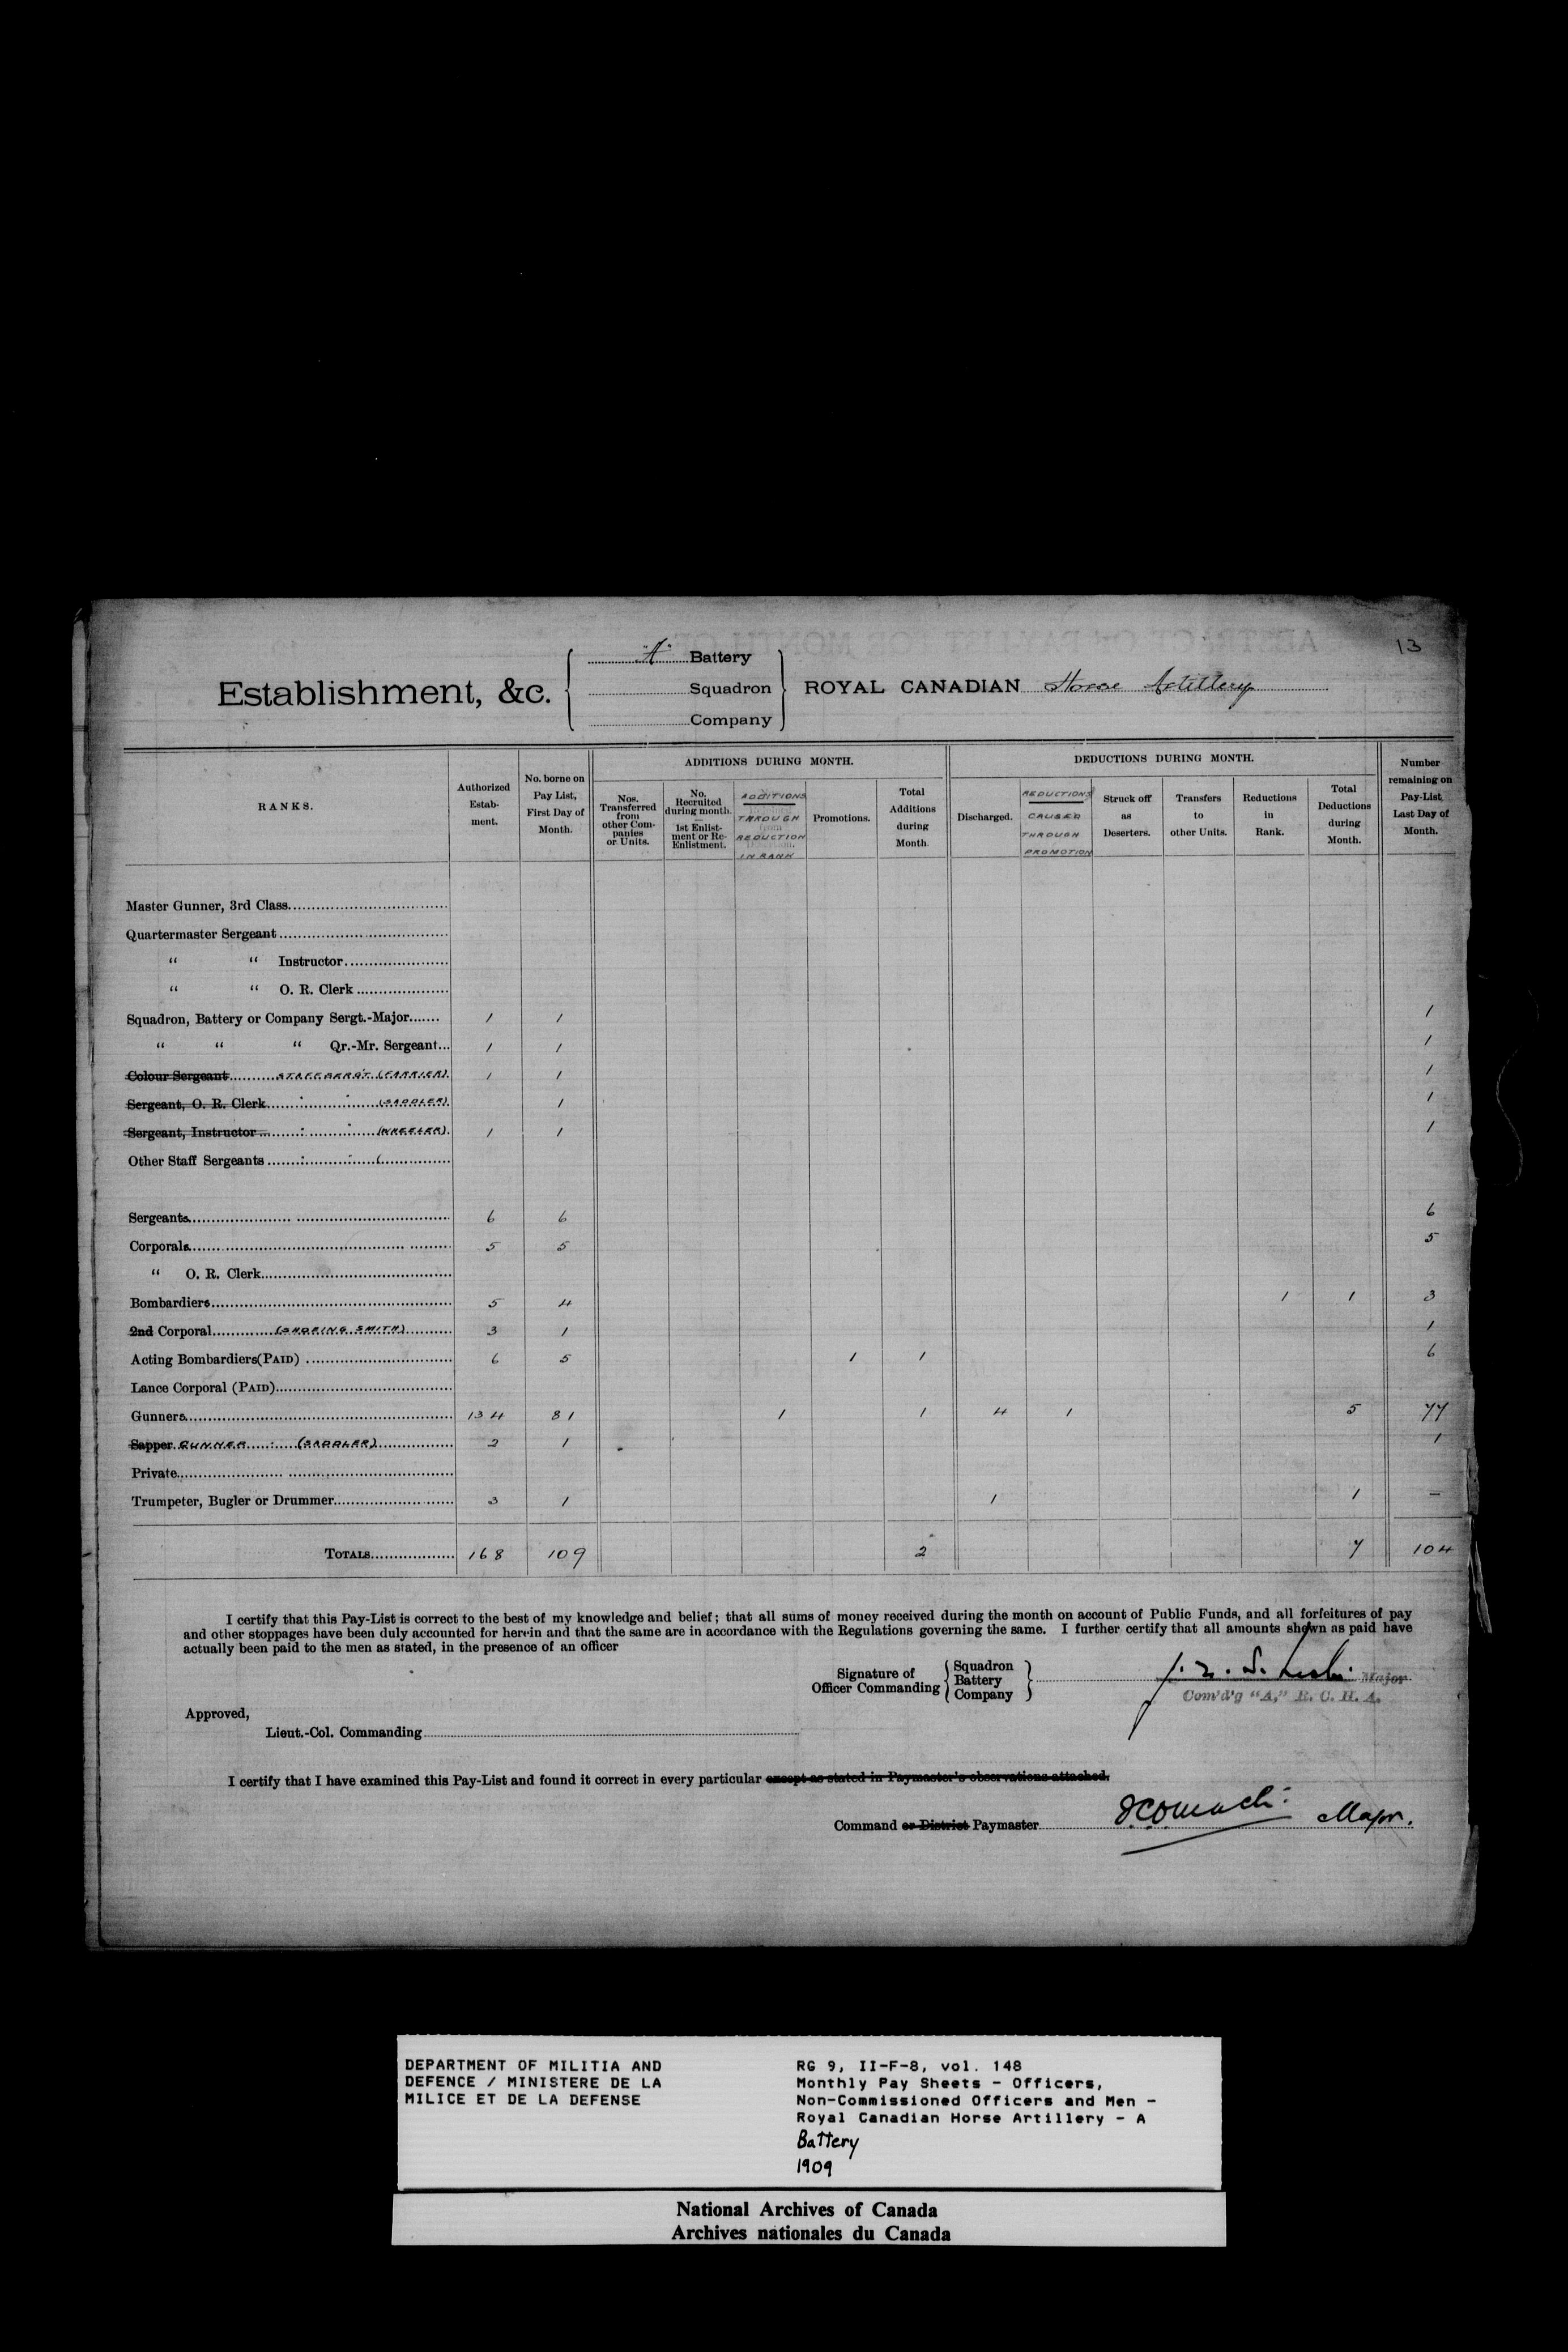 13
Establishment, &c.
"A" Battery
Squadron
Company
ROYAL CANADIAN Horse Artillery
RANKS.
Authorized Establishment.
No. borne on Pay List, First Day of Month.
ADDITIONS DURING MONTH.
Nos. Transferred from other Companies or Units.
No. Recruited during month. — 1st Enlistment or Re-Enlistment.
ADDITIONS THROUGH REDUCTION IN RANK
Promotions.
Total Additions during Month
DEDUCTIONS DURING MONTH.
Discharged.
REDUCTIONS CAUSED THROUGH PROMOTION
Struck off as Deserters.
Transfers to other Units.
Reductions in Rank.
Total Deductions during Month.
Number remaining on Pay-List, Last Day of Month.
Master Gunner, 3rd Class
Quartermaster Sergeant
" " Instructor
" " O. R. Clerk
Squadron, Battery or Company Sergt.-Major 1 1 1
" " " Qr.-Mr. Sergeant 1 1 1
Colour Sergeant STAFF SERGT (FARRIER) 1 1 1
Sergeant, O. R. Clerk " " (SADDLER) 1 1
Sergeant, Instructor " " (WHEELER) 1 1 1
Other Staff Sergeants " " (
Sergeants 6 6 6
Corporals 5 5 5
" O. R. Clerk
Bombardiers 5 4 1 1 3
2nd Corporal (SHOEING SMITH) 3 1 1
Acting Bombardiers (PAID) 6 5 1 1 6
Lance Corporal (PAID)
Gunners 134 81 1 1 4 1 5 77
Sapper GUNNER : (SADDLER) 2 1 1
Private
Trumpeter, Bugler or Drummer 3 1 1 1 —
TOTALS 168 109 2 7 104
I certify that this Pay-List is correct to the best of my knowledge and belief; that all sums of money received during the month on account of Public Funds, and all forfeitures of pay
and other stoppages have been duly accounted for herein and that the same are in accordance with the Regulations governing the same. I further certify that all amounts shown as paid have
actually been paid to the men as stated, in the presence of an officer
Signature of Officer Commanding
Squadron
Battery
Company
Major
Com'd'g "A," R. C. H. A.
Approved,
Lieut.-Col. Commanding
I certify that I have examined this Pay-List and found it correct in every particular except as stated in Paymaster's observations attached.
Command or District Paymaster Major.
DEPARTMENT OF MILITIA AND
DEFENCE / MINISTERE DE LA
MILICE ET DE LA DEFENSE
RG 9, II-F-8, vol. 148
Monthly Pay Sheets - Officers,
Non-Commissioned Officers and Men -
Royal Canadian Horse Artillery - A
Battery
1909
National Archives of Canada
Archives nationales du Canada